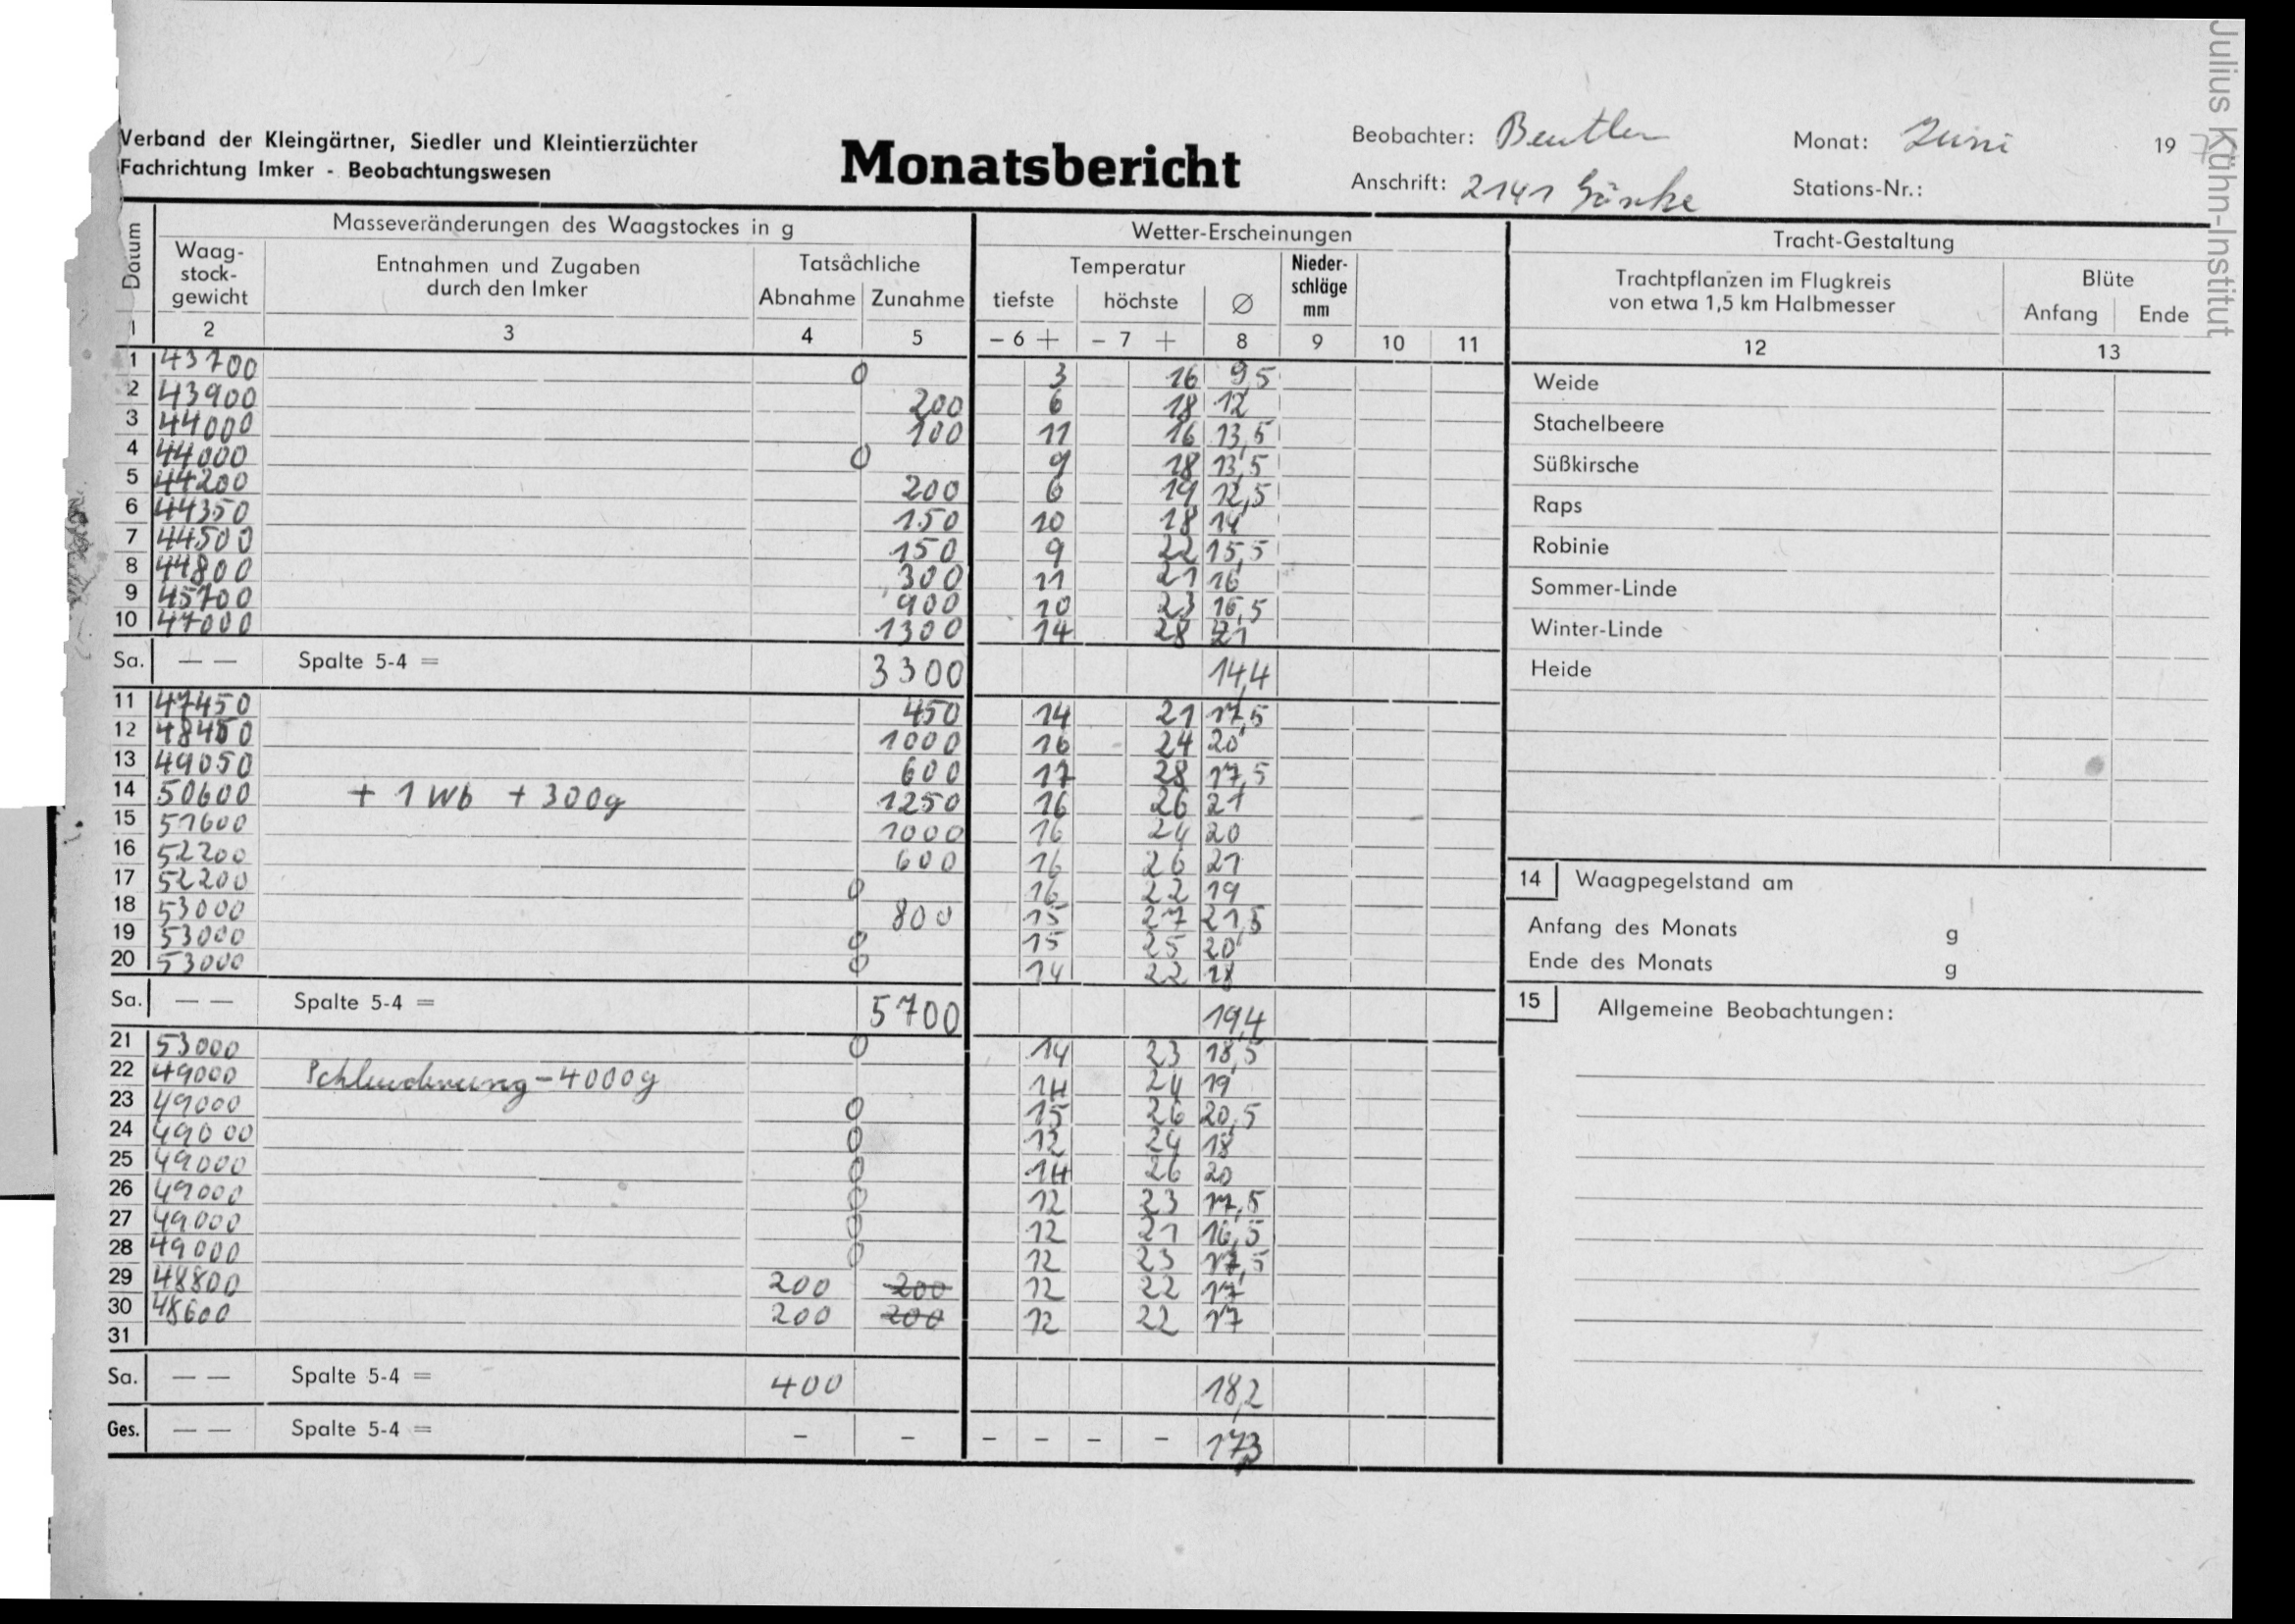 Verband der Kleingärtner, Siedler und Kleintierzüchter
Fachrichtung Imker - Beobachtungswesen
Monatsbericht
Beobachter: Beutler
Monat: Juni 19 7
Anschrift: 2141
Stations-Nr.:
Julius Kühn-Institut
Datum
Masseveränderungen des Waagstockes in g
Wetter-Erscheinungen
Tracht-Gestaltung
Waag-
stock-
gewicht
Entnahmen und Zugaben
durch den Imker
Tatsächliche
Abnahme Zunahme
Temperatur
tiefste höchste Ø
Nieder-
schläge
mm
Trachtpflanzen im Flugkreis
von etwa 1,5 km Halbmesser
Blüte
Anfang Ende
1 2 3 4 5 - 6 + - 7 + 8 9 10 11 12 13
1 43700 0 3 16 9,5
2 43900 200 6 18 12
3 44000 100 11 16 13,5
4 44000 0 9 18 13,5
5 44200 200 6 19 12,5
6 44350 150 10 18 14
7 44500 150 9 22 15,5
8 44800 300 11 21 16
9 45700 900 10 23 16,5
10 47000 1300 14 28 21
Sa. — — Spalte 5-4 = 3300 14,4
11 47450 450 14 21 17,5
12 48450 1000 16 24 20
13 49050 600 17 28 17,5
14 50600 + 1 Wb + 300g 1250 16 26 21
15 51600 1000 16 24 20
16 52200 600 16 26 21
17 52200 0 16 22 19
18 53000 800 15 27 21,5
19 53000 0 15 25 20
20 53000 0 14 22 18
Sa. — — Spalte 5-4 = 5700 19,4
21 53000 0 14 23 18,5
22 49000 - 4000g 14 24 19
23 49000 0 15 26 20,5
24 49000 0 12 24 18
25 49000 0 14 26 20
26 49000 0 12 23 17,5
27 49000 0 12 21 16,5
28 49000 0 12 23 17,5
29 48800 200 200 12 22 17
30 48600 200 200 12 22 17
31
Sa. — — Spalte 5-4 = 400 18,2
Ges. — — Spalte 5-4 = - - - - - - 17,3
Weide
Stachelbeere
Süßkirsche
Raps
Robinie
Sommer-Linde
Winter-Linde
Heide
14 Waagpegelstand am
Anfang des Monats g
Ende des Monats g
15 Allgemeine Beobachtungen: